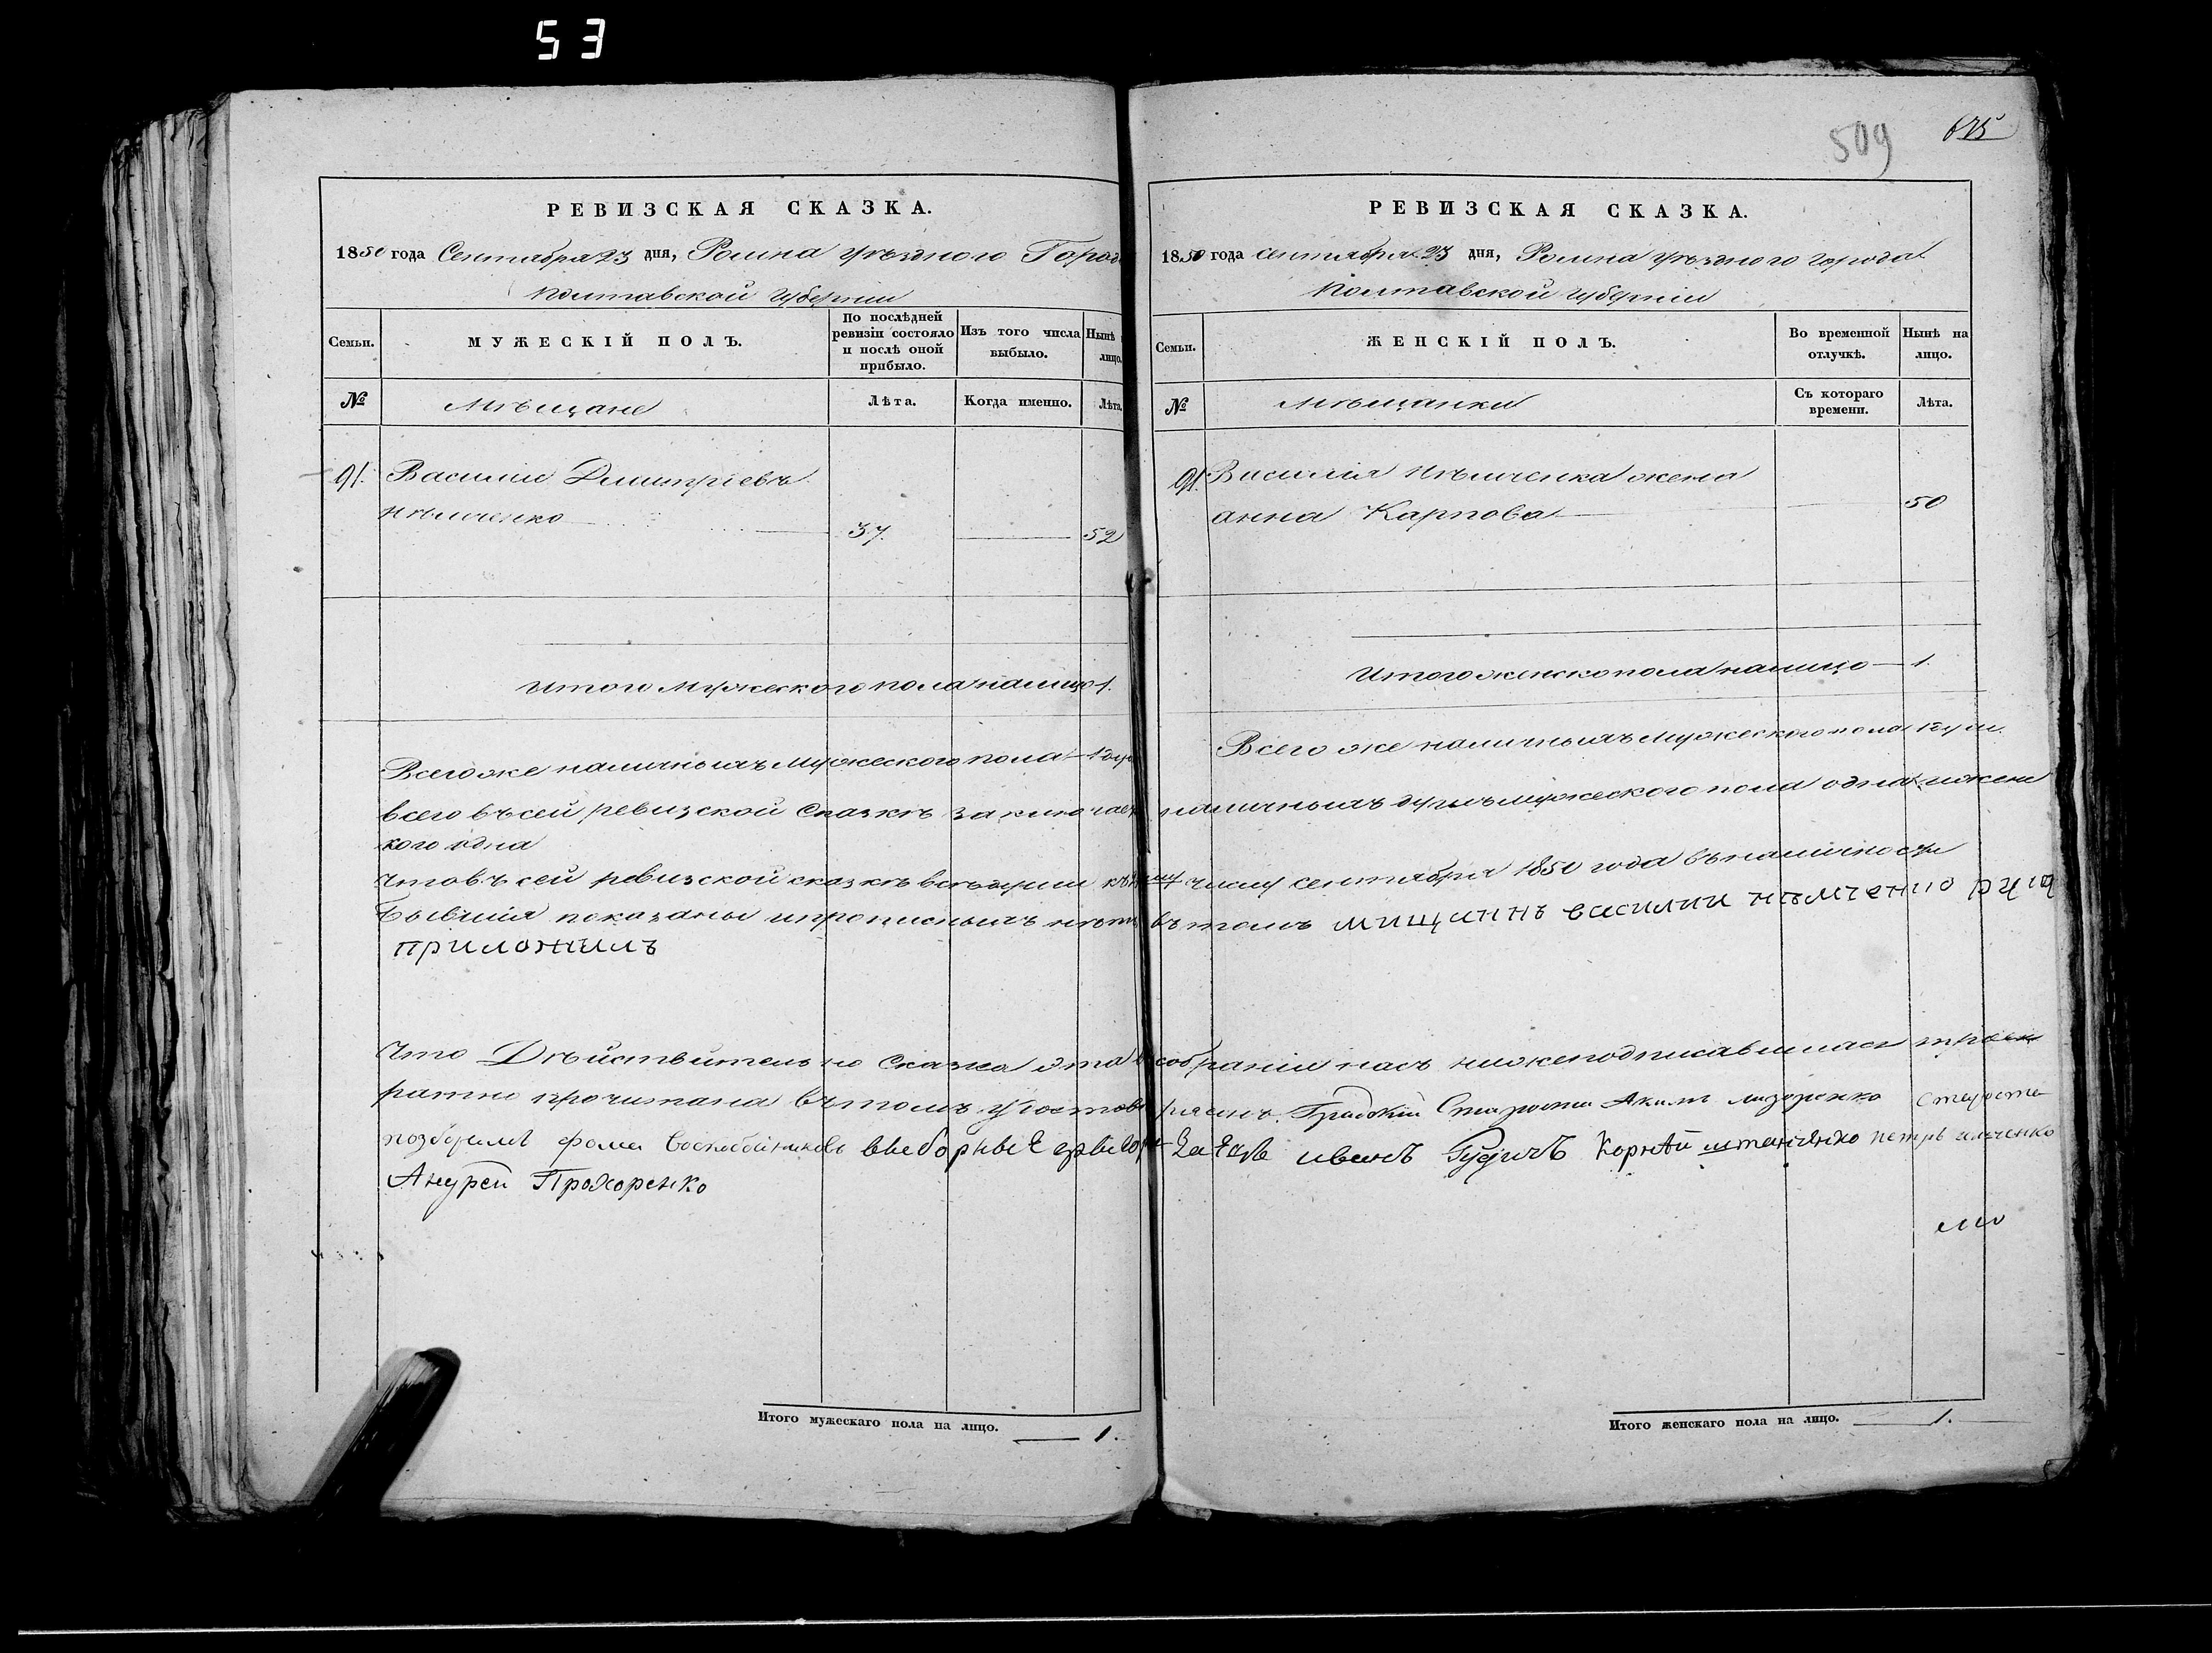 53
509
675
РЕВИЗСКАЯ СКАЗКА.
1850 года Сентября 23 дня, Ромна уѣзднаго Город
Полтавской Губерніи
Семьи.
МУЖЕСКІЙ ПОЛЪ.
По послѣдней ревизіи состояло и послѣ оной прибыло.
Изъ того числа выбыло.
Нынѣ
лицо.
№
Мѣщане
Лѣта.
Когда именно.
Лѣта.
91. Василій Дмитріевъ
Нѣмченко 37. 52
Итого Мужескаго пола налицо 1.
Всего же наличныхъ Мужескаго пола 1
всего въ сей ревизской Сказкѣ заключает
кого одна
Что въ сей ревизской сказкѣ всѣ души къ
Бывшія показаны и прописныхъ нѣтъ
приложилъ
Что Дѣйствительно Сказка эта въ
ратно прочитана въ томъ удостов
фома выборные
Андрей Прохоренко
Итого мужескаго пола на лицо. 1.
РЕВИЗСКАЯ СКАЗКА.
1850 года сентября 23 дня, Ромна уѣзднаго города
Полтавской губерніи
Семьи.
ЖЕНСКІЙ ПОЛЪ.
Во временной отлучкѣ.
Нынѣ на лицо.
№
Мѣщанки
Съ котораго времени.
Лѣта.
91. Василія Нѣмченка жена
анна Карпова 50
Итого женско пола налицо 1.
Всего же наличныхъ мужескаго пола 1
наличныхъ душъ мужескаго пола одна и женс
числу сентября 1850 года въ наличности
въ томъ мищанинъ василии нѣмченко руку
собраніи насъ нижеподписавшихся троек
ряемъ. Градскій Староста Аким старосте
иванъ Корнѣй петръ
Итого женскаго пола на лицо. 1.